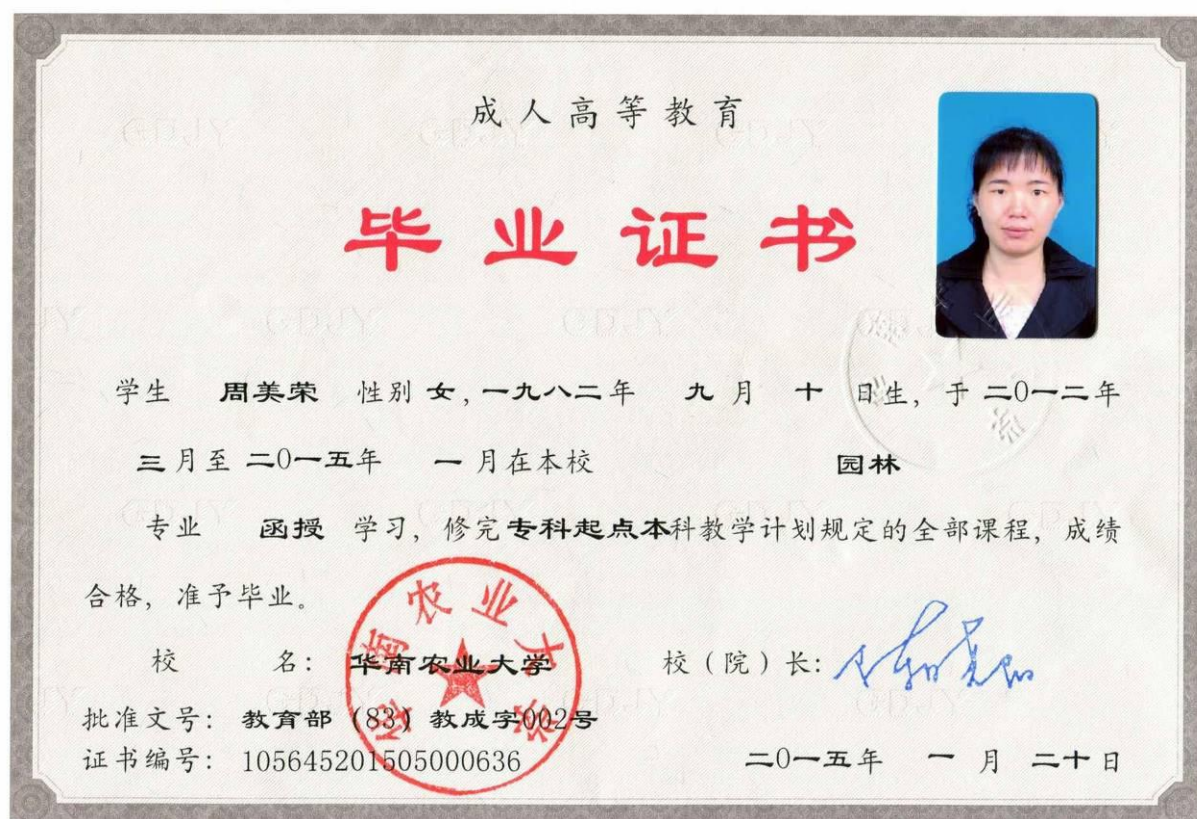 成人高等教育
毕业证书
学生 周美荣 性别 女，一九八二年 九 月 十 日生，于 二0一二年
三月至 二0一五年 一月在本校 园林
专业 函授 学习，修完专科起点本科教学计划规定的全部课程，成绩
合格，准予毕业。
华南农业大学
校 名： 华南农业大学 校（院）长：
批准文号： 教育部（83）教成字002号
证书编号： 105645201505000636 二0一五年 一 月 二十日